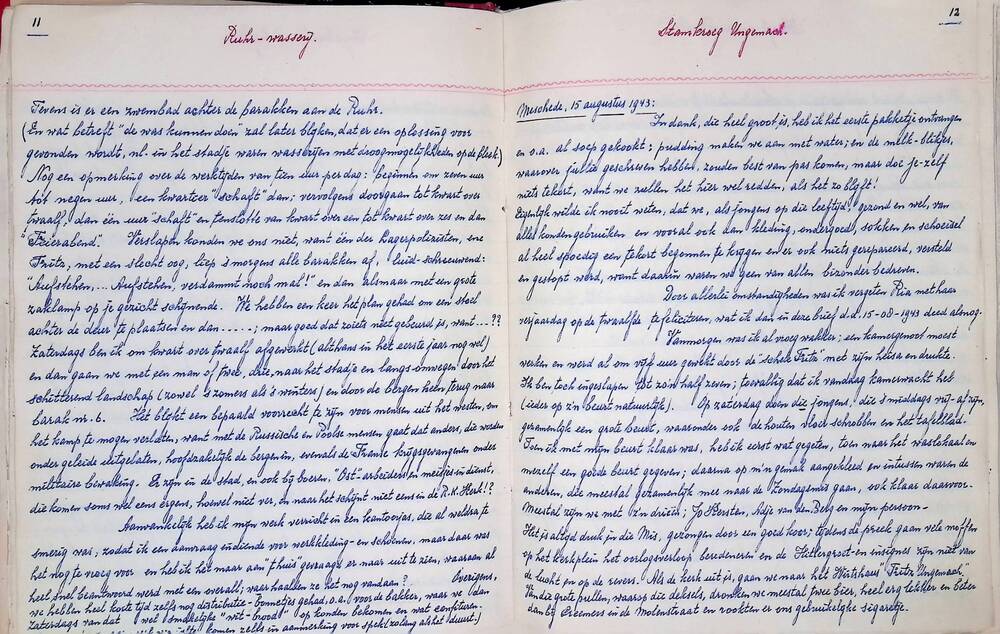 11
Ruhr-wasserij.
Tevens is er een zwembad achter de barakken aan de Ruhr.
(En wat betreft "de was kunnen doen" zal later blijken, dat er een oplossing voor
gevonden wordt, nl. in het stadje waren wasserijen met droogmogelijkheden op de bleek.)
Nog een opmerking over de werktijden van tien uur per dag: beginnen om zeven uur
tot negen uur, een kwartier "schaft" dan; vervolgens doorgaan tot kwart over
twaalf, dan één uur "schaft" en tenslotte van kwart over een tot kwart over zes en dan
"Feierabend". Verslapen konden we ons niet, want één der Lagerpolizisten, ene
Fritz, met een slecht oog, liep 's morgens alle barakken af, luid-schreeuwend:
"Aufstehen, ... Aufstehen, verdammt noch mal!" en dan alsmaar met een grote
zaklamp op je gezicht schijnende. We hebben een keer het plan gehad om een stoel
achter de deur te plaatsen en dan .....; maar goed dat zoiets niet gebeurd is, want ...??
Zaterdags ben ik om kwart over twaalf afgewerkt (althans in het eerste jaar nog wel)
en dan gaan we met een man of twee, drie, naar het stadje en langs omwegen door het
schitterend landschap (zowel 's zomers als 's winters) en door de bergen heen, terug naar
barak nr. 6. Het blijkt een bepaald voorrecht te zijn voor mensen uit het westen, om
het kamp te mogen verlaten, want met de Russische en Poolse mensen gaat dat anders, die worden
onder geleide uitgelaten, hoofdzakelijk de bergen in, evenals de Franse krijgsgevangenen onder
militaire bewaking. Er zijn in de stad, en ook bij boeren, "Ost"-arbeiders en meisjes in dienst,
die komen soms wel eens ergens, hoewel niet ver, en naar het schijnt niet eens in de R.K. Kerk!?
Aanvankelijk heb ik mijn werk verricht in een kantoorjas, die al weldra te
smerig was, zodat ik een aanvraag indiende voor werkkleding en schoenen, maar daar was
het nog te vroeg voor en heb ik het maar aan 't huis gevraagd er naar uit te zien, waaraan al
heel snel beantwoord werd met een overall; waar haalden ze het nog vandaan? Overigens,
we hebben heel korte tijd zelfs nog distributie-bonnetjes gehad, o.a. voor de bakker, waar we dan
zaterdags van dat wel smakelijke "wit-brood" op konden bekomen en wat confituren.
komen zelfs in aanmerking voor spek (zolang als het duurt.)
12
Stamkroeg Ungemach.
Meschede, 15 augustus 1943:
In dank, die heel groot is, heb ik het eerste pakketje ontvangen
en o.a. al soep gekookt: pudding maken we aan met water; en de melk-blikjes,
waarover jullie geschreven hebben, zouden best van pas komen, maar doe je-zelf
niets tekort, want we zullen het hier wel redden, als het zo blijft!
Eigenlijk wilde ik nooit weten, dat we, als jongens op die leeftijd, gezond en wel, van
alles konden gebruiken en vooral ook aan kleding, ondergoed, sokken en schoeisel
al heel spoedig een tekort begonnen te krijgen en er ook niets gerepareerd, versteld
en gestopt werd, want daarin waren we geen van allen bizonder bedreven.
Door allerlei omstandigheden was ik vergeten Ria met haar
verjaardag op de twaalfde te feliciteren, wat ik dan in deze brief d.d. 15-08-1943 deed alsnog.
Vanmorgen was ik al vroeg wakker; een kamergenoot moest
werken en werd al om vijf uur gewekt door de "schele Fritz" met zijn heisa en drukte.
Ik ben toch ingeslapen tot zo'n half zeven; toevallig dat ik vandaag kamerwacht heb
(ieder op z'n beurt natuurlijk). Op zaterdag doen die jongens, die 's middags vrij-af zijn,
gezamenlijk een grote beurt, waaronder ook de houten vloer schrobben en het tafelblad.
Toen ik met mijn beurt klaar was, heb ik eerst wat gegeten, toen naar het waslokaal en
mezelf een goede beurt gegeven; daarna op m'n gemak aangekleed en intussen waren de
anderen, die meestal gezamenlijk mee naar de Zondagsmis gaan, ook klaar daarvoor.
Meestal zijn we met z'n drieën; Jo Kersten, Adje van den Berg en mijn persoon-
Het is altijd druk in die Mis, gezongen door een goed koor; tijdens de preek gaan vele moffen
op het kerkplein het oorlogsverloop beredeneren en de Hitlergroet en insignes zijn niet van
de lucht en op de revers. Als de kerk uit is, gaan we naar het Wirtshaus "Fritz Ungemach."
Van die grote pullen, waarop die deksels, dronken we meestal twee bier, heel erg lekker en beter
dan bij Creemers in de Molenstraat en rookten er ons gebruikelijke sigaretje.